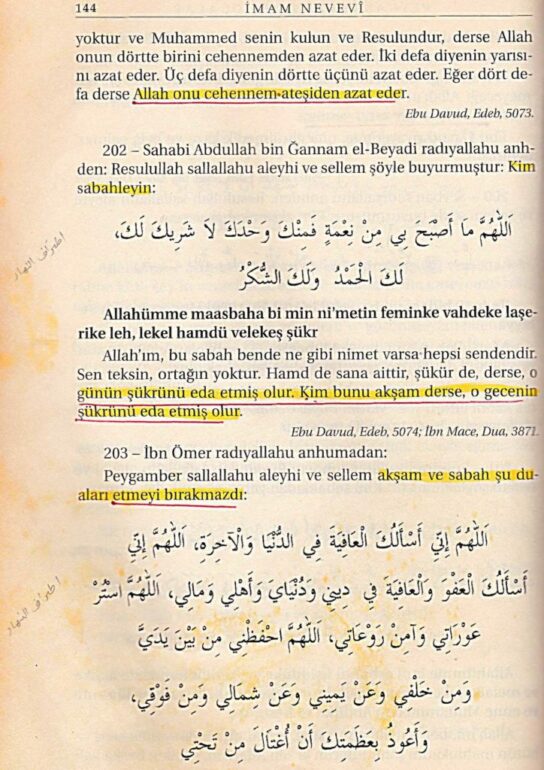 144 İMAM NEVEVÎ
yoktur ve Muhammed senin kulun ve Resulundur, derse Allah
onun dörtte birini cehennemden azat eder. İki defa diyenin yarısı-
nı azat eder. Üç defa diyenin dörtte üçünü azat eder. Eğer dört de-
fa derse Allah onu cehennem ateşiden azat eder.
Ebu Davud, Edeb, 5073.
202 – Sahabi Abdullah bin Ğannam el-Beyadi radıyallahu anh-
den: Resulullah sallallahu aleyhi ve sellem şöyle buyurmuştur: Kim
sabahleyin:
اَللّٰهُمَّ مَا أَصْبَحَ بِي مِنْ نِعْمَةٍ فَمِنْكَ وَحْدَكَ لاَ شَرِيكَ لَكَ،
لَكَ الْحَمْدُ وَلَكَ الشُّكْرُ
Allahümme maasbaha bi min ni’metin feminke vahdeke laşe-
rike leh, lekel hamdü velekeş şükr
Allah’ım, bu sabah bende ne gibi nimet varsa hepsi sendendir.
Sen teksin, ortağın yoktur. Hamd de sana aittir, şükür de, derse, o
günün şükrünü eda etmiş olur. Kim bunu akşam derse, o gecenin
şükrünü eda etmiş olur.
Ebu Davud, Edeb, 5074; İbn Mace, Dua, 3871.
203 – İbn Ömer radıyallahu anhumadan:
Peygamber sallallahu aleyhi ve sellem akşam ve sabah şu du-
aları etmeyi bırakmazdı:
اَللّٰهُمَّ إِنِّي أَسْأَلُكَ الْعَافِيَةَ فِي الدُّنْيَا وَالْآخِرَةِ، اَللّٰهُمَّ إِنِّي
أَسْأَلُكَ الْعَفْوَ وَالْعَافِيَةَ فِي دِينِي وَدُنْيَايَ وَأَهْلِي وَمَالِي، اَللّٰهُمَّ اسْتُرْ
عَوْرَاتِي وَآمِنْ رَوْعَاتِي، اَللّٰهُمَّ احْفَظْنِي مِنْ بَيْنَ يَدَيَّ
وَمِنْ خَلْفِي وَعَنْ يَمِينِي وَعَنْ شِمَالِي وَمِنْ فَوْقِي،
وَأَعُوذُ بِعَظَمَتِكَ أَنْ أُغْتَالَ مِنْ تَحْتِي